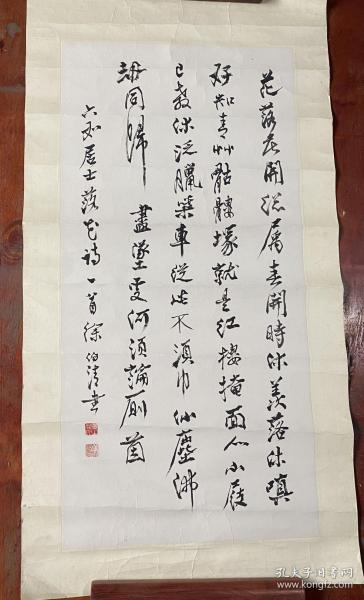 花落花開總屬春開時休羨落休嗔
好知青艸骷髏塚就是紅樓掩面人山屐
已教休泛臘柴車從此不須巾仙塵佛
劫同歸盡墜處何須論廁茵
六如居士落花詩一首徐伯清書
孔夫子旧书网
kongfz.com